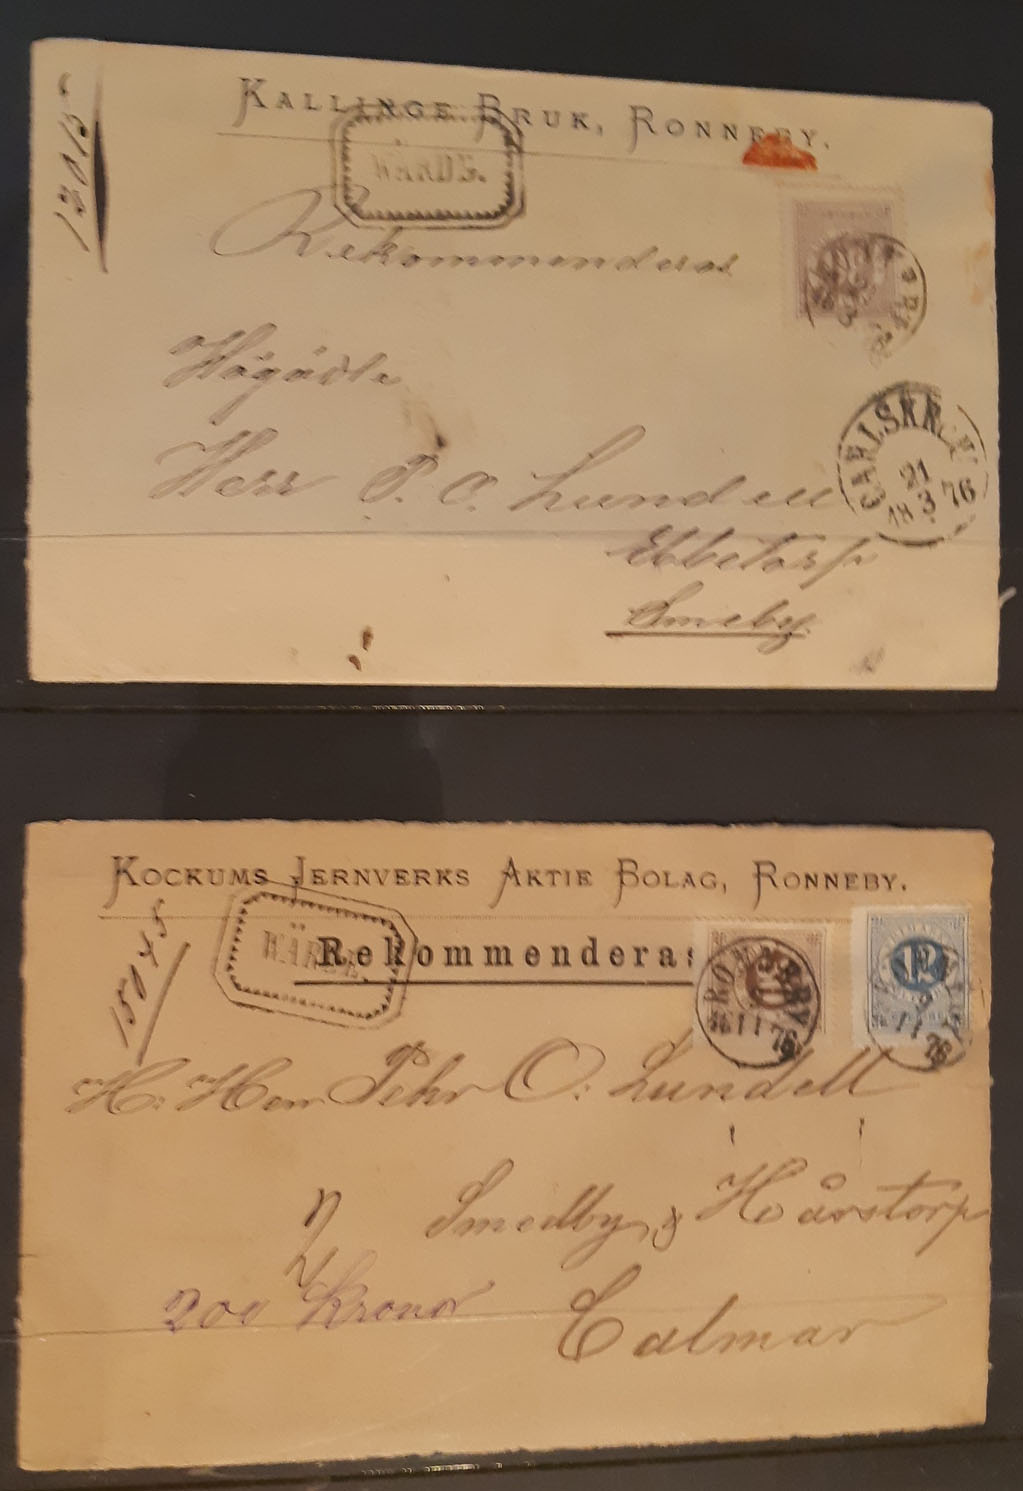 KALLINGE BRUK, RONNEBY.
WÄRDE.
12015
Rekommenderas
Högädle
Herr P. O. Lundell
CARLSKRONA
21
18 3 76
Ebbetorp
Smeby
KOCKUMS JERNVERKS AKTIE BOLAG, RONNEBY.
WÄRDE.
Rekommenderas
15045
RONNEBY
11 76
12
H. Herr Pehr O: Lundell
Smedby & Hårstorp
200 Kronor
Calmar